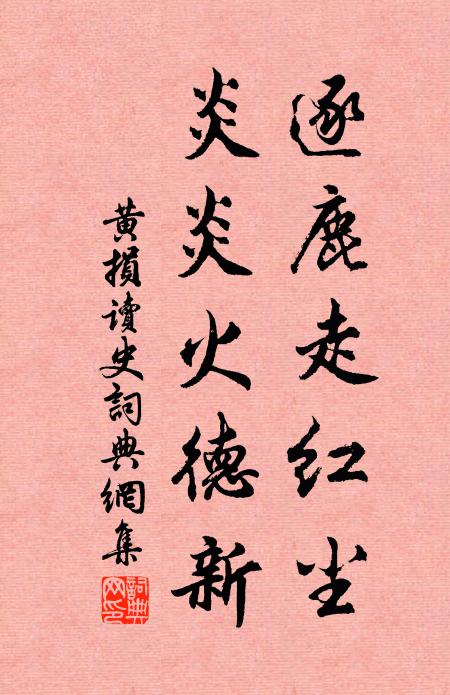 逐鹿走红尘
炎炎火德新
黄損讀史詞典網集
詞典网印